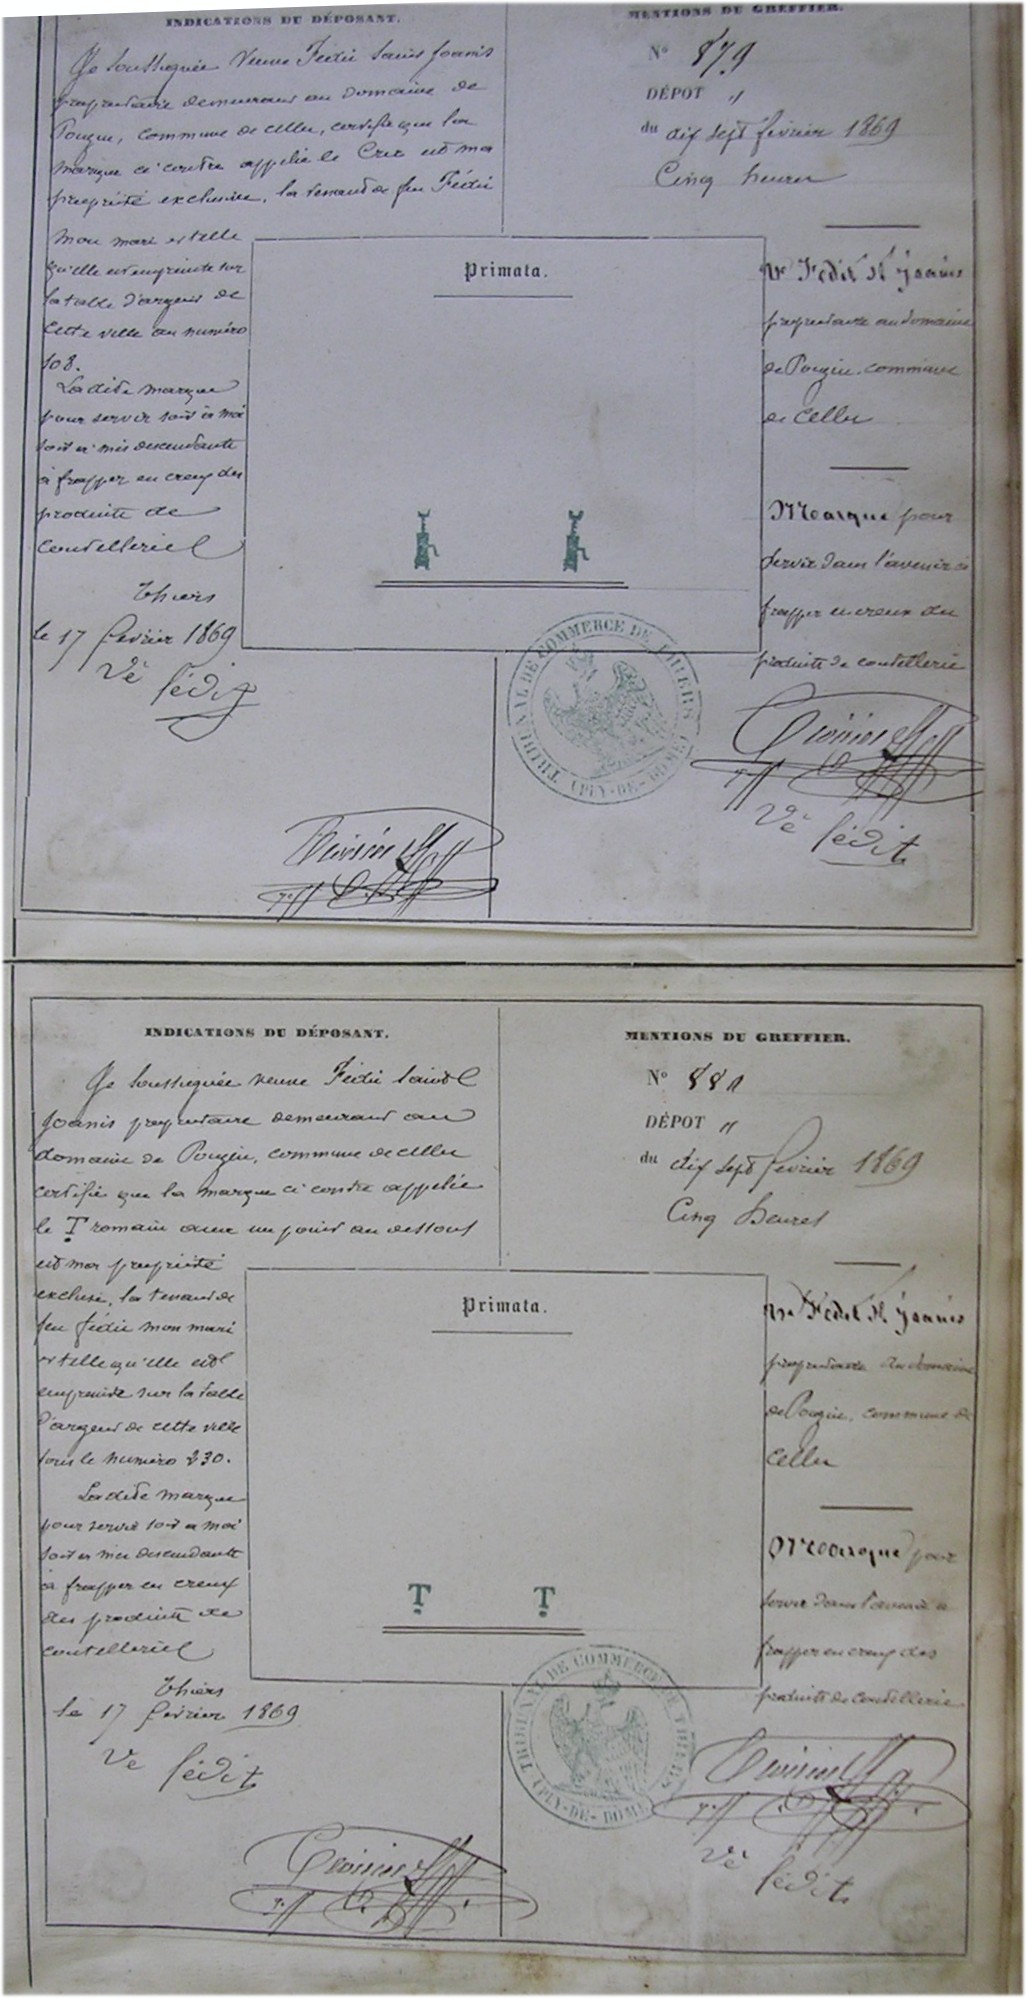 INDICATIONS DU DÉPOSANT.
Je soussignée veuve Fédit Saint Joanis
propriétaire demeurant au domaine de
Pouzin, commune de Celles, certifie que la
marque ci contre appelée le Cric est ma
propriété exclusive, la tenant de feu Fédit
mon mari et telle
qu'elle est empreinte sur
la table d'argent de
cette ville au numéro
108.
La dite marque
pour servir soit à moi
soit à mes descendants
à frapper en creux des
produits de
coutellerie
Thiers
le 17 février 1869
Ve fédit
MENTIONS DU GREFFIER.
No 879
DÉPOT "
du dix sept février 1869
Cinq heures
Primata.
Ve Fédit St Joanis
propriétaire au domaine
de Pouzin, commune
de Celles
Marque pour
servir dans l'avenir à
frapper en creux des
produits de coutellerie
TRIBUNAL DE COMMERCE DE THIERS (PUY-DE-DOME)
Ve fédit
INDICATIONS DU DÉPOSANT.
Je soussignée veuve Fédit Saint
Joanis propriétaire demeurant au
domaine de Pouzin, commune de Celles
certifie que la marque ci contre appelée
le T romain avec un point au dessous
est ma propriété
exclusive, la tenant de
feu fédit mon mari
et telle qu'elle est
empreinte sur la table
d'argent de cette ville
sous le numéro 230.
La dite marque
pour servir soit à moi
soit à mes descendants
à frapper en creux
des produits de
coutellerie
Thiers
le 17 février 1869
Ve fédit
MENTIONS DU GREFFIER.
No 880
DÉPOT "
du dix sept février 1869
Cinq heures
Primata.
T T
Ve Fédit St Joanis
propriétaire au domaine
de Pouzin, commune de
Celles
Marque pour
servir dans l'avenir à
frapper en creux des
produits de coutellerie
TRIBUNAL DE COMMERCE DE THIERS (PUY-DE-DOME)
Ve fédit